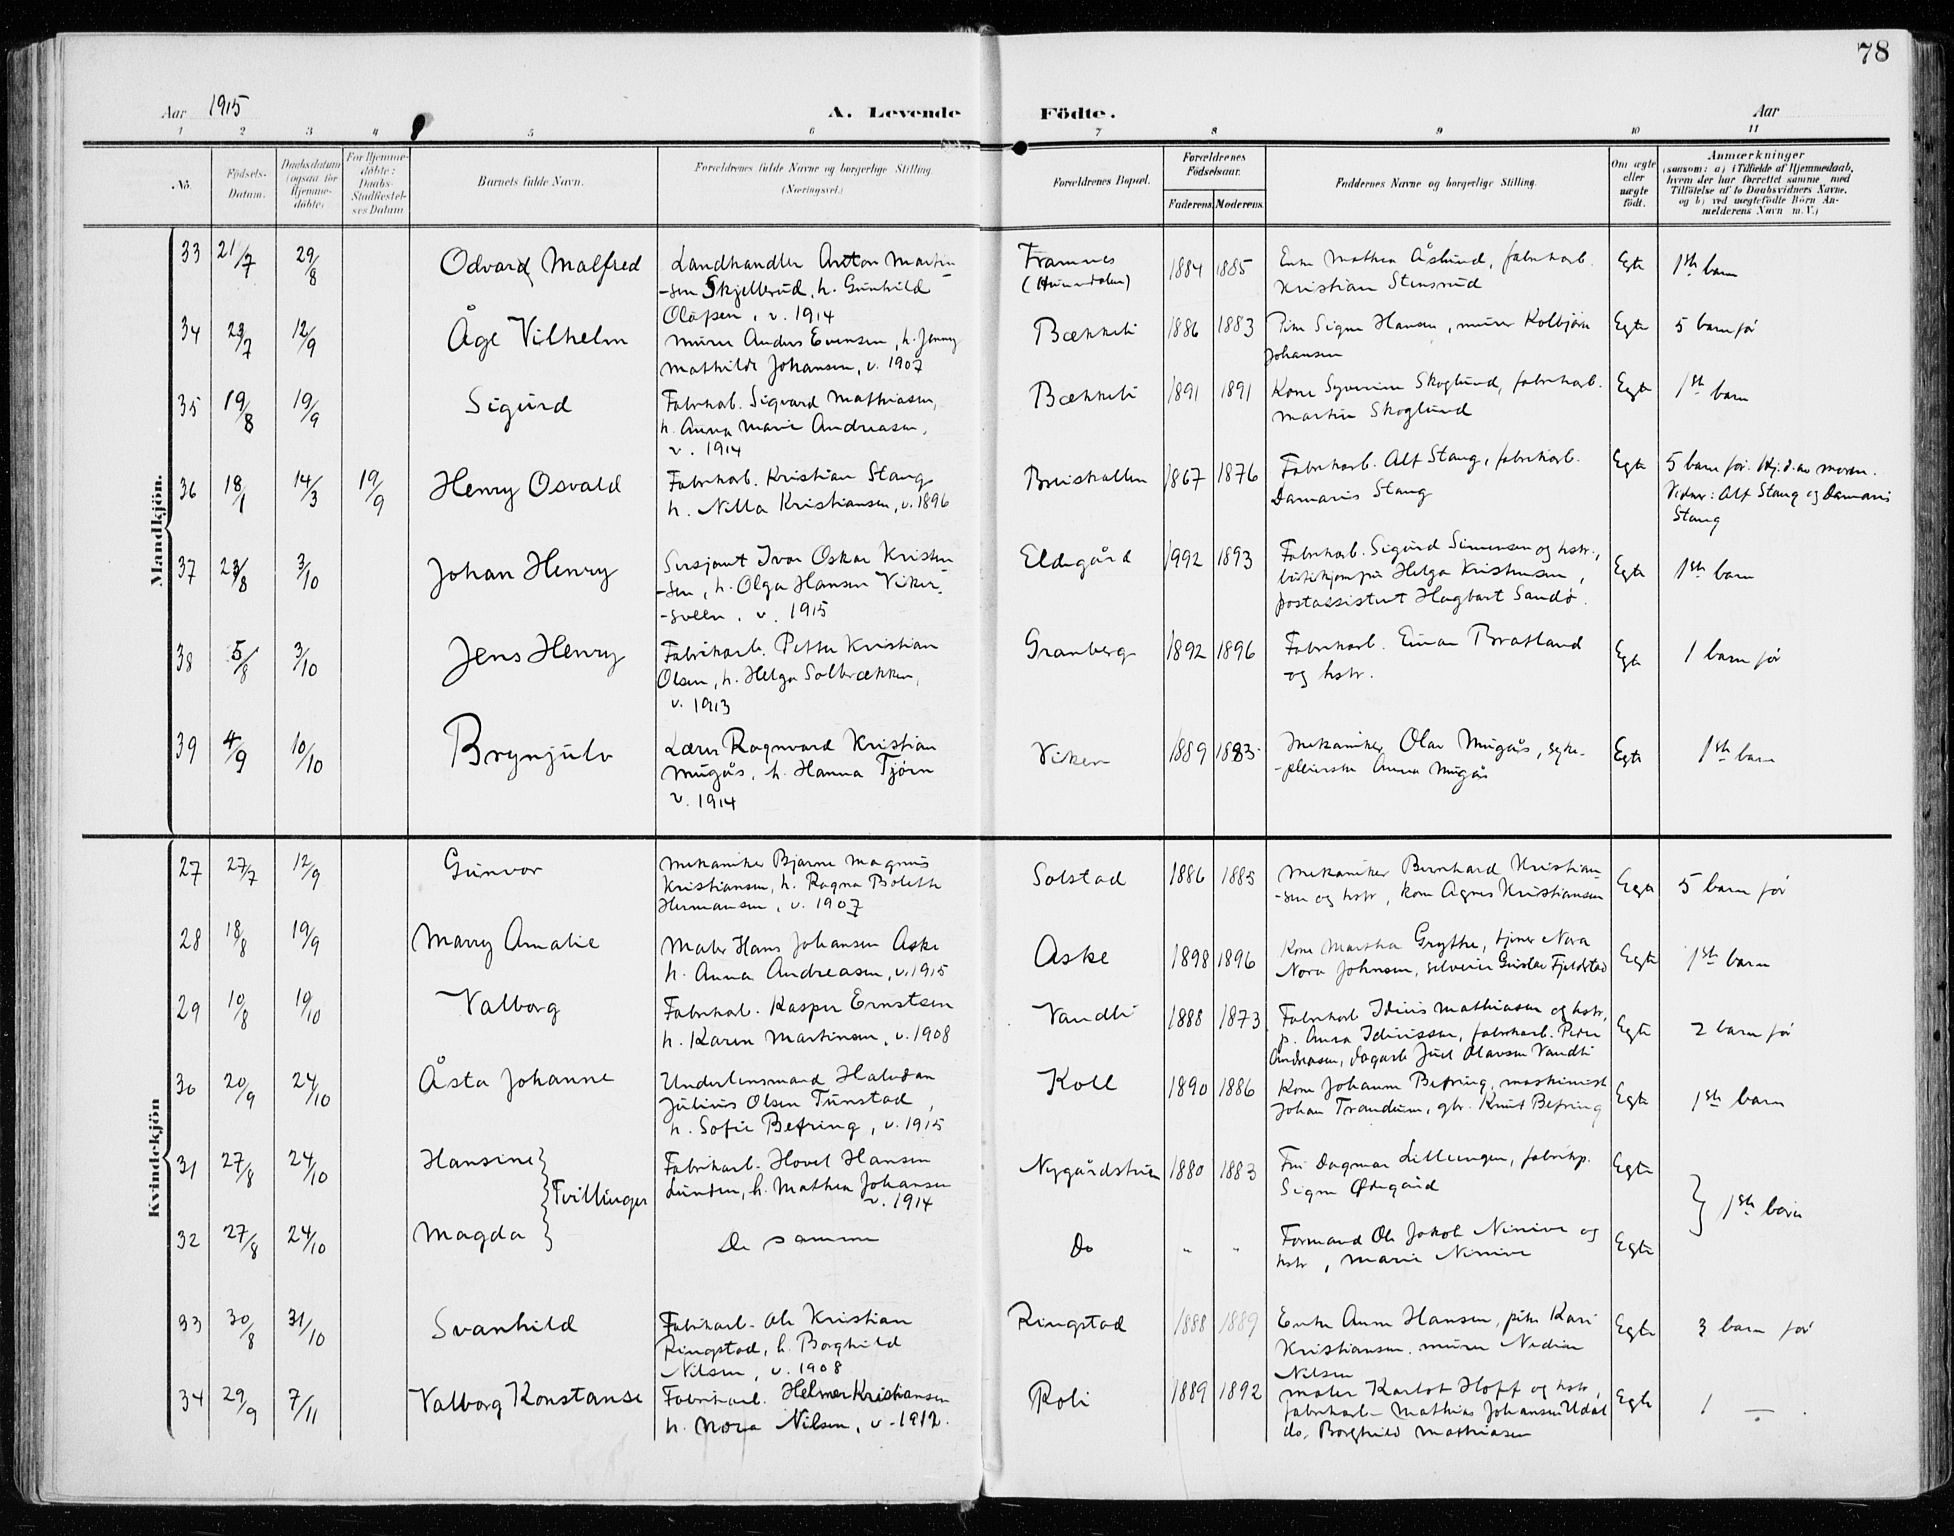 78
Aar 1915
A. Levende Födte.
Aar
1 2 3 4 5 6 7 8 9 10 11
No.
Födsels-Datum.
Daabsdatum (ogsaa for Hjemme-döbte)
For Hjemme-döbte: Daabs-Stadfæstel-ses Datum
Barnets fulde Navn.
Forældrenes fulde Navne og borgerlige Stilling.
(Næringsvei.)
Forældrenes Bopæl.
Forældrenes Födselsaar.
Faderens Moderens
Faddernes Navne og borgerlige Stilling.
Om ægte eller uægte födt.
Anmærkninger
(saasom: a) i Tilfælde af Hjemmedaab,
hvem der har forrettet samme med
Tilföielse af to Daabsvidners Navne.
og b) ved uægtefödte Börn An-
melderens Navn m. V.)
Mandkjön.
33 21/7 29/8 Odvard Malfred
Landhandler Anton Martin
-sen Skjellerud, h. Gunhild
Olafsen, v. 1914
Framnes
(Hunndalen)
1884 1885
Enke Mathea Åslund, fabrikarb.
Kristian Stensrud
Egte 1ste barn
34 23/7 12/9 Åge Vilhelm
Murer Anders Evensen, h. Jenny
Mathilde Johansen, v. 1907
Bækkeli 1886 1883
Pike Signe Hansen, murer Kolbjörn
Johansen
Egte 5 barn för
35 19/8 19/9 Sigurd
Fabrikarb. Sigvard Mathiasen,
h. Anna Marie Andreasen,
v. 1914
Bækkeli 1891 1891
Kone Syverine Skoglund, fabrikarb.
Martin Skoglund
Egte 1ste barn
36 18/1 14/3 19/9 Henry Osvald
Fabrikarb. Kristian Stang
h. Nilla Kristiansen, v. 1896
Breiskallen 1867 1876
Fabrikarb. Alf Stang, fabrikarb.
Damaris Stang
Egte 5 barn för. Hj.d. av moren.
Vidner: Alf Stang og Damaris
Stang
37 23/8 3/10 Johan Henry
Sersjant Ivar Oskar Kristen
-sen, h. Olga Hansen Viker-
-sveen, v. 1915
Eldegård 1992 1893
Fabrikarb. Sigurd Simensen og hstr.,
butikjomfru Helga Kristensen,
postassistent Hagbart Sandø.
Egte 1ste barn
38 5/8 3/10 Jens Henry
Fabrikarb. Petter Kristian
Olsen, h. Helga Solbrækken,
v. 1913
Granberg 1892 1896
Fabrikarb. Einar Bratland
og hstr.
Egte 1 barn för
39 4/9 10/10 Brynjulv
Lærer Ragnvard Kristian
Mugås, h. Hanna Tjörn
v. 1914
Viken 1889 1883
Mekaniker Olav Mugås, syke-
-pleierske Anna Mugås
Egte 1ste barn
Kvindekjön
27 27/7 12/9 Gunvor
Mekaniker Bjarne Magnus
Kristiansen, h. Ragna Bolette
Hermansen, v. 1907
Solstad 1886 1885
Mekaniker Bernhard Kristian
-sen og hstr, kone Agnes Kristiansen
Egte 5 barn för
28 18/8 19/9 Marry Amalie
Maler Hans Johansen Aske
h. Anna Andreasen, v. 1915
Aske 1898 1896
Kone Martha Grythe, tjener Nora
Nora Johnsen, Gustav Fjeldstad
Egte 1ste barn
29 10/8 10/10 Valborg
Fabrikarb. Kasper Ernstsen
h. Karen Martinsen, v. 1908
Vandli 1888 1873
Fabrikarb Idius Mathiasen og hstr,
p. Anna Idiussen, fabrikarb. Peder
Andreasen, dagarb Juel Olavsen Vandli
Egte 2 barn för
30 20/9 24/10 Åsta Johanne
Underlensmand Halvdan
Julius Olsen Tunstad,
h. Sofie Befring, v. 1915
Koll 1890 1886
Kone Johanne Befring, maskinist
Johan Trandum, gbr. Knut Befring
Egte 1ste barn
31 27/8 24/10 Hansine
Tvillinger
Fabrikarb. Hovel Hansen
Lunden, h. Mathea Johansen
v. 1914
Nygårdstuen 1880 1883
Fru Dagmar Lilleengen, fabrikp.
Signe Ødegård
Egte
1ste barn
32 27/8 24/10 Magda
De samme
Do " "
Formand Ole Jakob Ninive og
hstr, Marie Ninive
Egte
33 30/8 31/10 Svanhild
Fabrikarb. Ole Kristian
Ringstad, h. Borghild
Nilsen, v. 1908
Ringstad 1888 1889
Enke Anne Hansen, pike Kari
Kristiansen, murer Nedian
Nilsen
Egte 3 barn för
34 29/9 7/11 Valborg Konstanse
Fabrikarb. Helmer Kristiansen
h. Nora Nilsen, v. 1912.
Roli 1889 1892
Maler Karlot Hoff og hstr,
fabrikarb Mathias Johansen Udal
do. Borghild Mathiasen
Egte 1 —